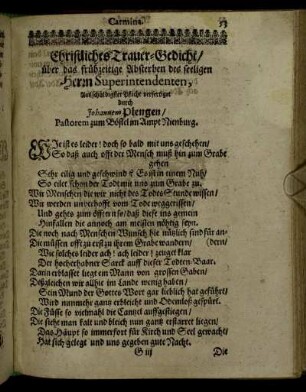 Carmina.
53
Christliches Trauer-Gedicht/
über das frühzeitige Absterben des seeligen
Herrn Superintendenten,
Auß schuldigster Pflicht verfertiget
durch
Johannem Plengen/
Pastorem zum Böstel im Ampt Nienburg.
WJe ist es leider! doch so bald mit uns geschehen/
So daß auch offt der Mensch muß hin zum Grabe
gehen
Sehr eilig und geschwind? Es ist in einem Nuh/
So eilet schon der Todt mit uns zum Grabe zu.
Wir Menschen die wir nicht des Todes Stunde wissen/
Wir werden unverhofft vom Tode weggerissen/
Und gehts zum öfftern so/ daß diese ins gemein
Hinfallen die annoch am meisten nöhtig seyn.
Die noch nach Menschen Wunsch die nützlich sind für an-
Die müssen offt zu erst zu ihrem Grabe wandern/ (dern/
Wie solches leider ach! ach leider! zeuget klar
Der hocherhabner Sarck auff dieser Todten-Baar.
Darin erblasset liegt ein Mann von grossen Gaben/
Deßgleichen wir allhie im Lande wenig haben/
Sein Mund der Gottes Wort gar lieblich hat geführt/
Wird nunmehr gantz erbleicht und Odemloß gespürt.
Die Füsse so viemahl die Cantzel auffgestiegen/
Die sieht man kalt und bleich nun gantz erstarret liegen/
Das Häupt so immerfort für Kirch und Seel gewacht/
Hat sich gelegt und uns gegeben gute Nacht.
G iij
Die